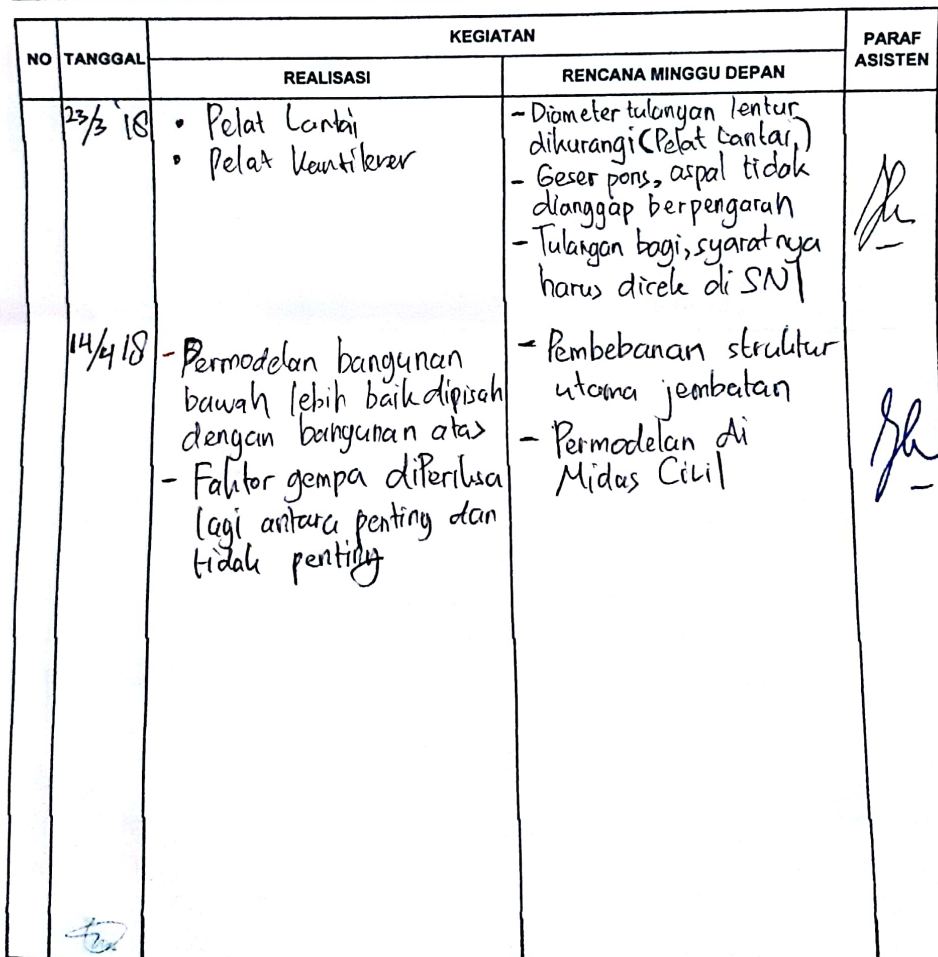 NO TANGGAL KEGIATAN PARAF ASISTEN
REALISASI RENCANA MINGGU DEPAN
23/3 '18
• Pelat Lantai
• Pelat Kantilever
- Diameter tulangan lentur
dikurangi (Pelat Lantai)
- Geser pons, aspal tidak
dianggap berpengaruh
- Tulangan bagi, syaratnya
harus dicek di SNI
14/4 18
- Permodelan bangunan
bawah lebih baik dipisah
dengan bangunan atas
- Faktor gempa diPeriksa
lagi antara penting dan
tidak penting
- Pembebanan struktur
utama jembatan
- Permodelan di
Midas Civil